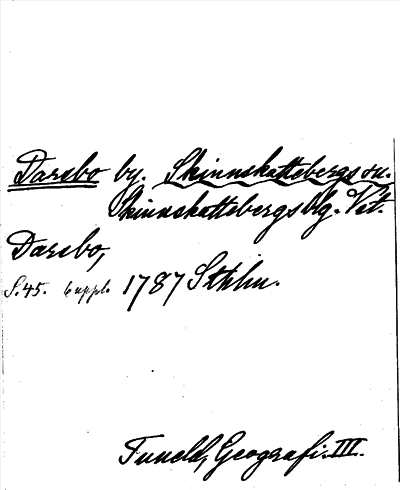 Darsbo by. Skinnskattebergs su.
Skinnskattebergs blg. Vst.
Darsbo,
S. 45. 6 uppl. 1787 Sthlm.
Tuneld, Geografi. III.